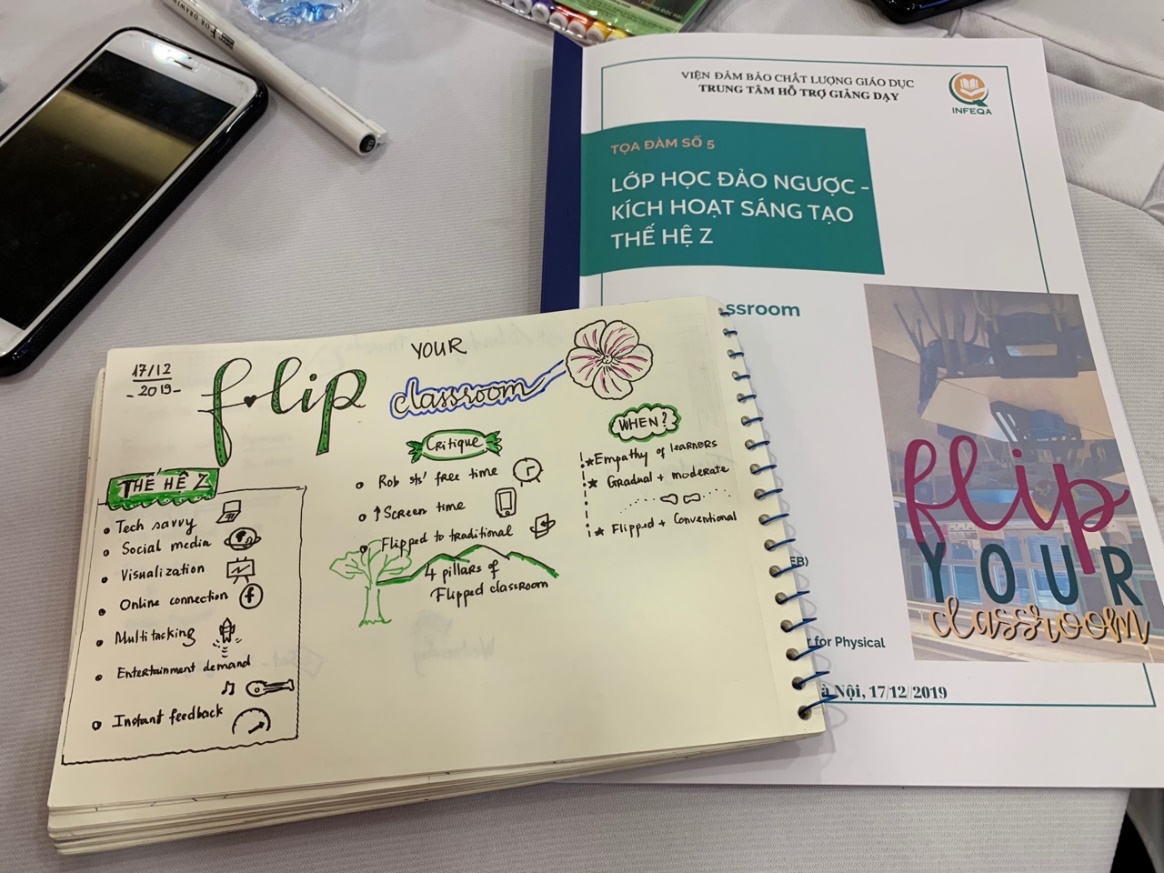 FOR DRAWING
VIỆN ĐẢM BẢO CHẤT LƯỢNG GIÁO DỤC
TRUNG TÂM HỖ TRỢ GIẢNG DẠY
INFEQA
TỌA ĐÀM SỐ 5
LỚP HỌC ĐẢO NGƯỢC -
KÍCH HOẠT SÁNG TẠO
THẾ HỆ Z
ssroom
flip
YOUR
classroom
EB)
for Physical
à Nội, 17/12/2019
17/12
- 2019 -
flip
YOUR
classroom
THẾ HỆ Z
Tech savvy
Social media
Visualization
Online connection
f
Multitasking
Entertainment demand
Instant feedback
Critique
Rob sts' free time
↑ Screen time
Flipped to traditional
4 pillars of
Flipped classroom
WHEN?
★ Empathy of learners
★ Gradual + moderate
★ Flipped + Conventional